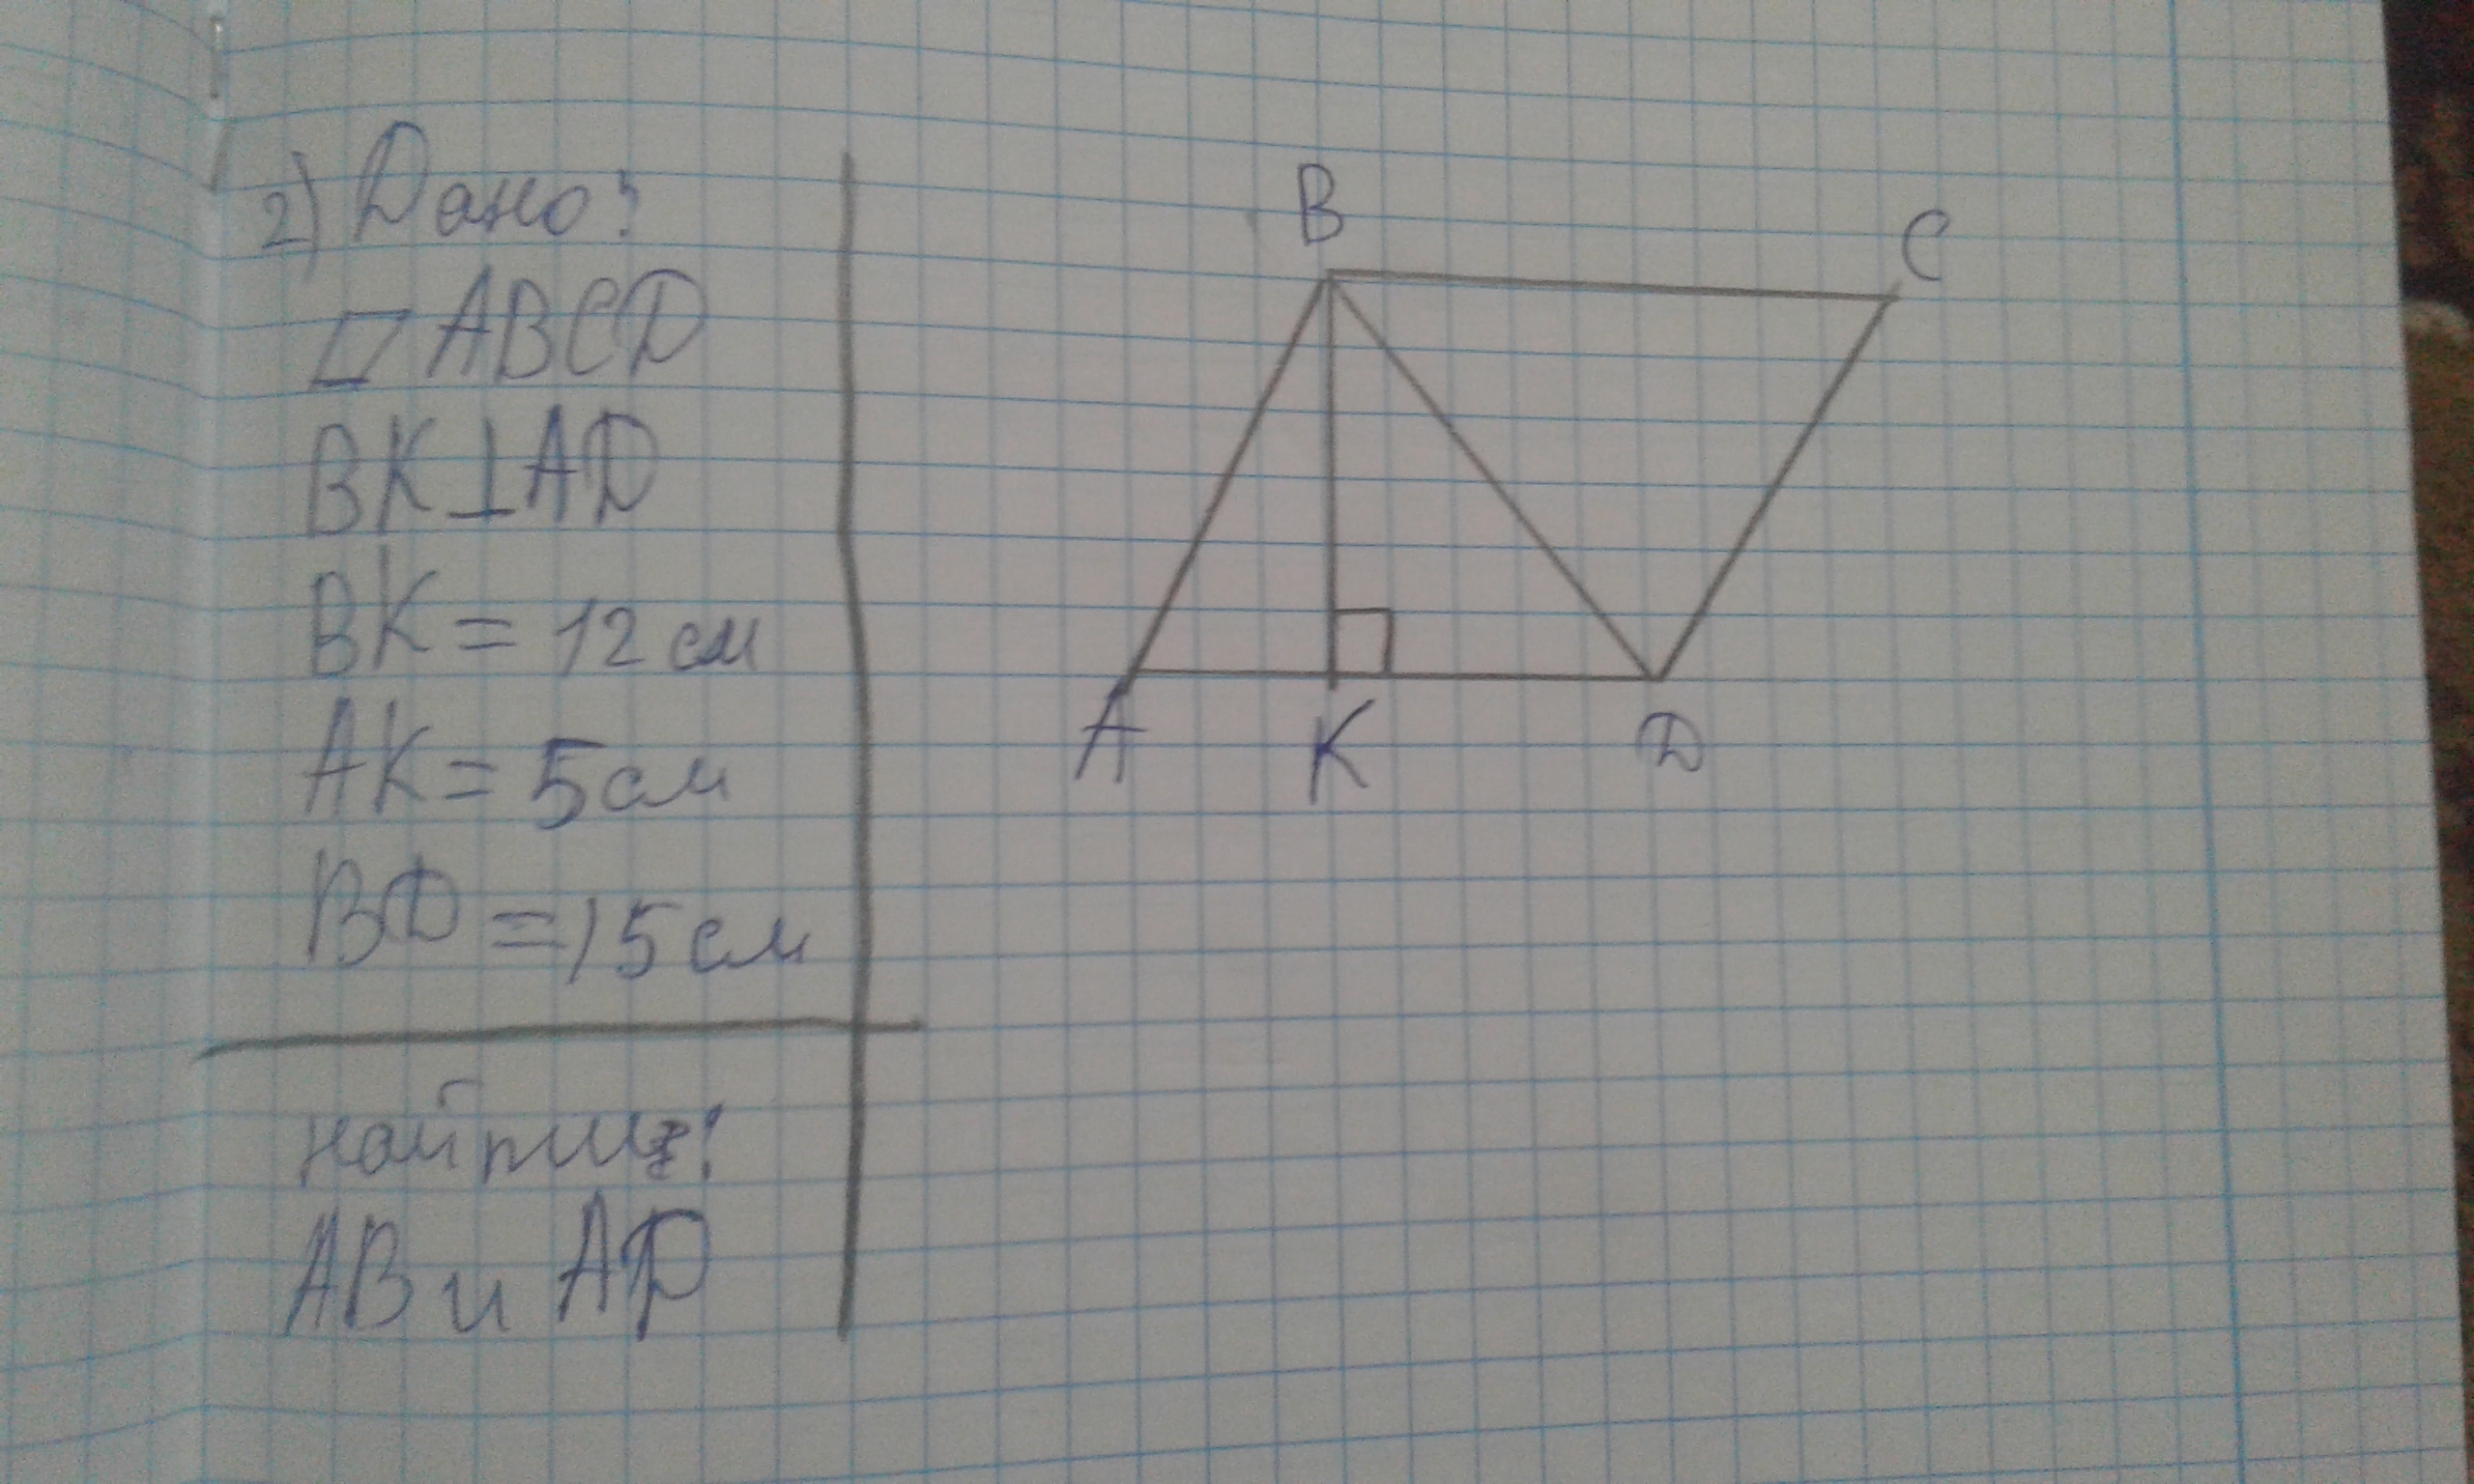 2) Дано:
▱ ABCD
BK⊥AD
BK = 12 см
AK = 5 см
BD = 15 см
найти:
AB и AD
B
C
A
K
D